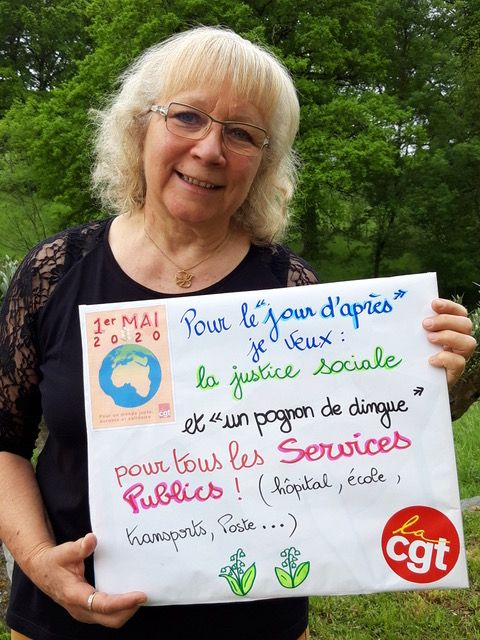 1er MAI
2020
Pour un monde juste,
durable et solidaire
cgt
Pour le "jour d'après"
je veux :
la justice sociale
et «un pognon de dingue»
pour tous les Services
Publics ! (hôpital, école,
transports, Poste...)
la
cgt